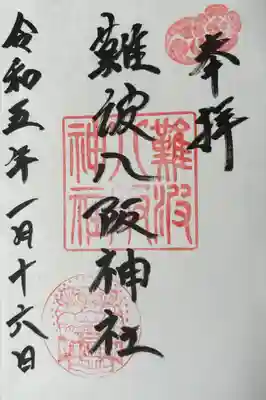 奉拝
難波八阪神社
難波八阪神社
令和五年一月十六日